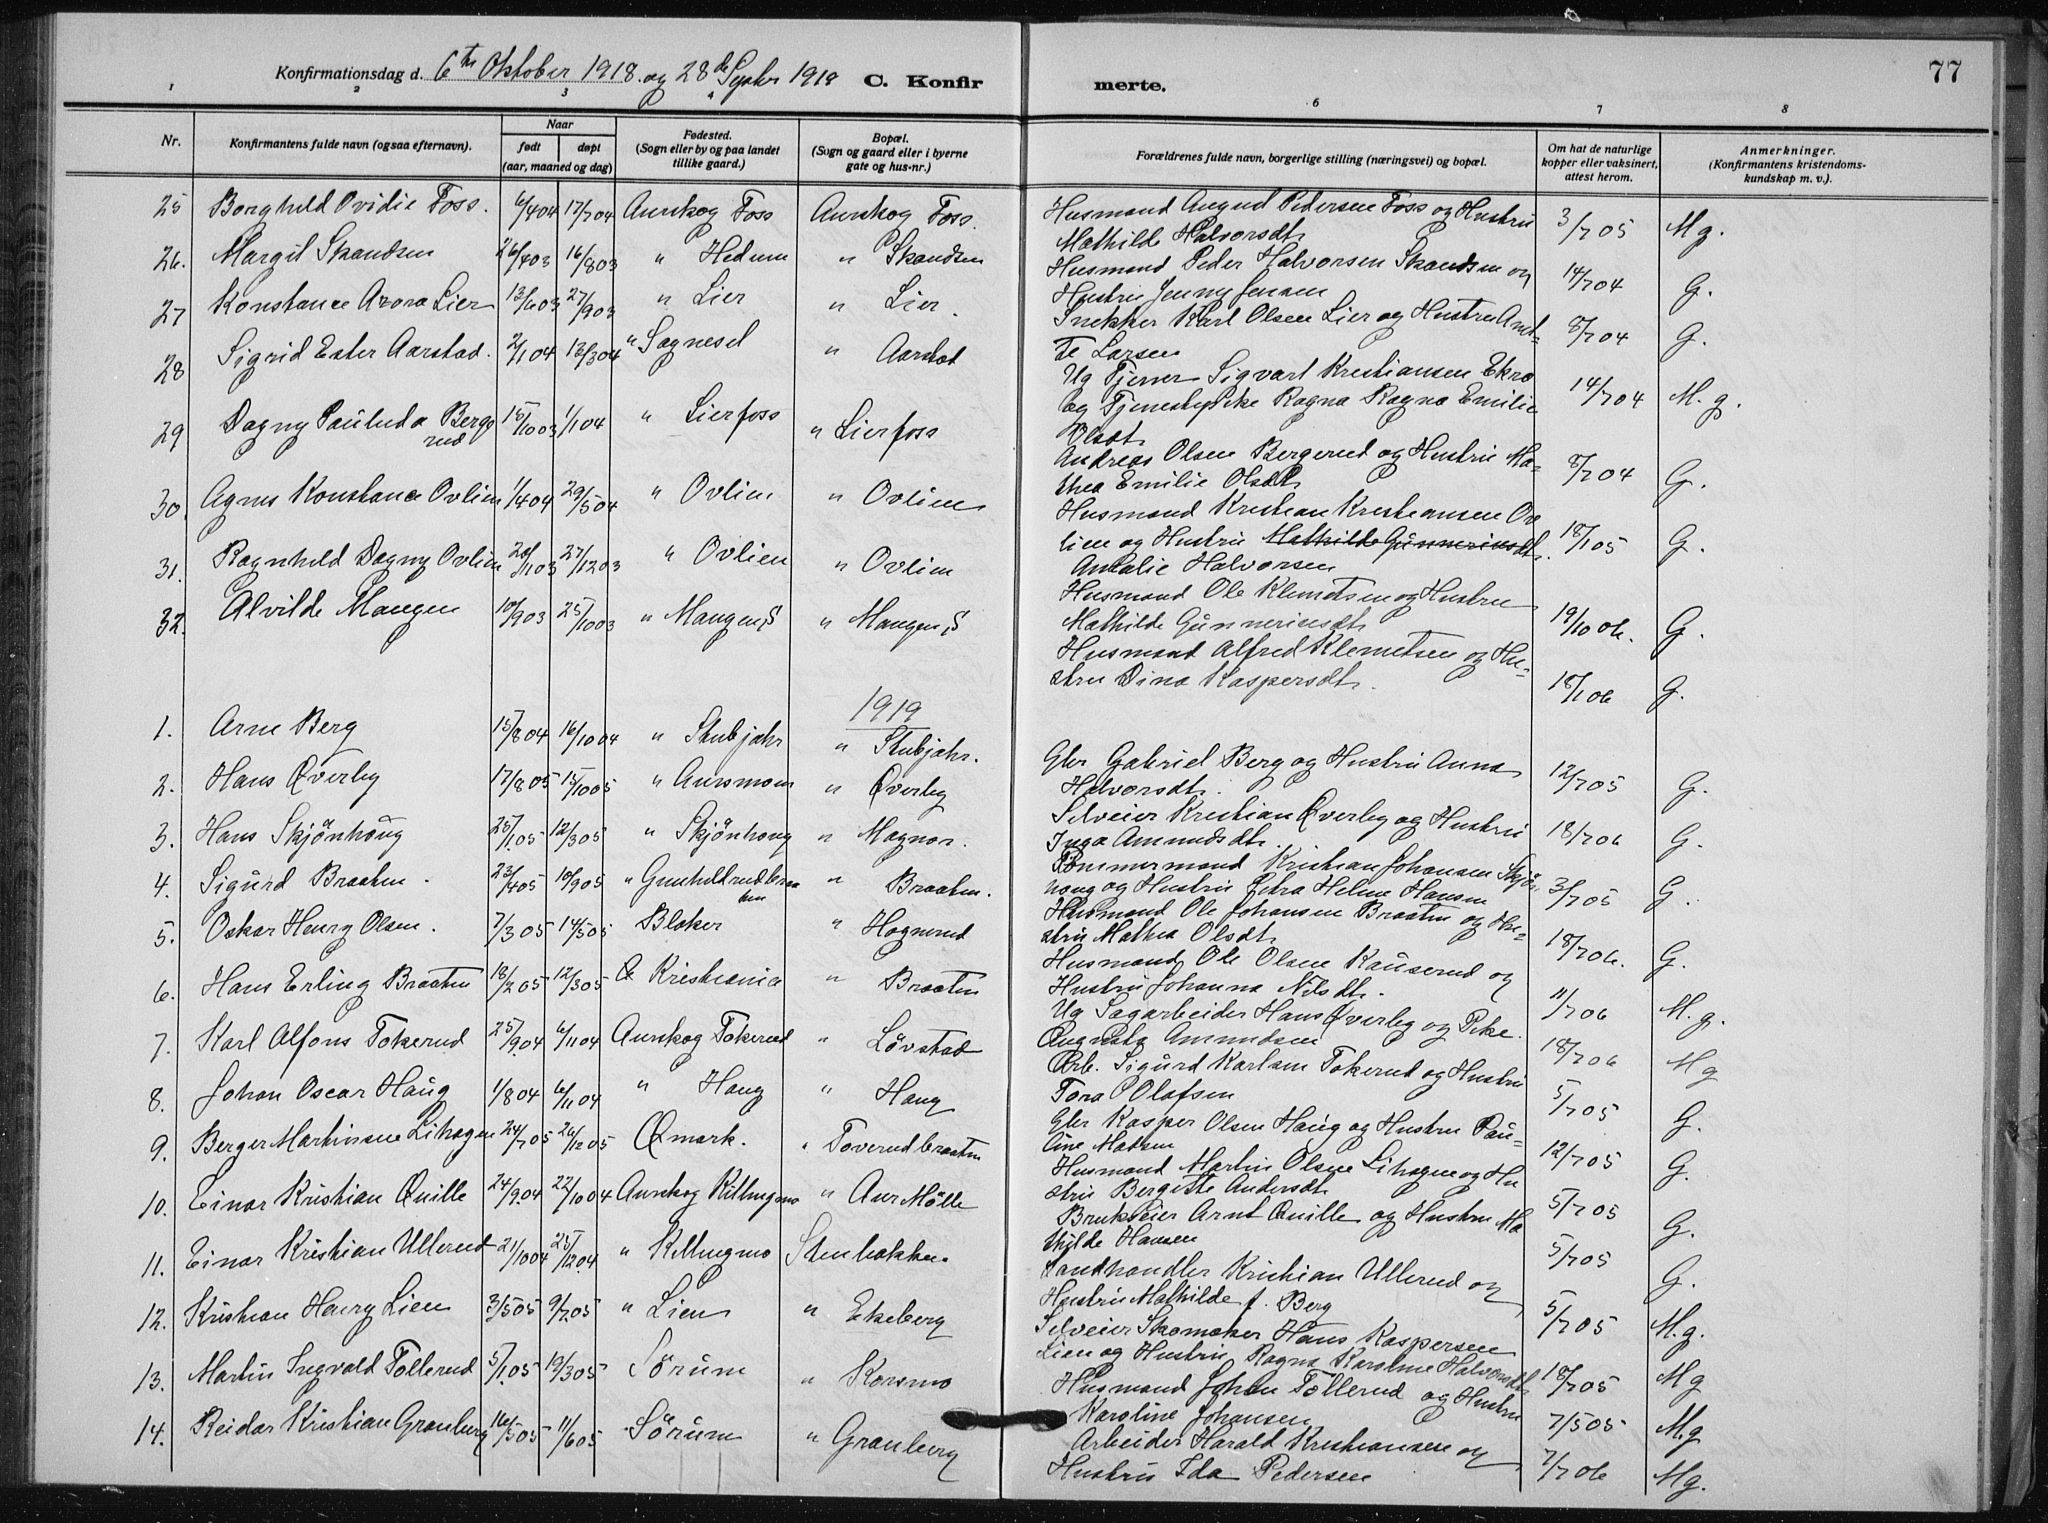 77
Konfirmationsdag d. 6te Oktober 1918 og 28de Septbr 1919 C. Konfirmerte.
1 2 3 6 7 8
Nr. Konfirmantens fulde navn (ogsaa efternavn). Naar født døpt (aar, maaned og dag) Fødested. (Sogn eller by og paa landet tillike gaard.) Bopæl. (Sogn og gaard eller i byerne gate og hus-nr.) Forældrenes fulde navn, borgerlige stilling (næringsvei) og bopæl. Om hat de naturlige kopper eller vaksinert, attest herom. Anmerkninger. (Konfirmantens kristendomskundskap m. v.).
25 Borghild Ovidie Foss. 6/4 04 17/7 04 Aurskog Foss Aurskog Foss. Husmand August Pedersen Foss og Hustru Mathilde Halvorsdt. 3/7 05 M.g.
26. Margit Skandsen 26/4 03 16/8 03 " Hedum " Skandsen Husmand Peder Halvorsen Skandsen og Hustru Jenny Jensen 14/7 04 G.
27 Konstance Arora Lier 13/6 03 27/9 03 " Lier " Lier. Snekker Karl Olsen Lier og Hustru Anette Larsen 8/7 04 G.
28 Sigrid Ester Aarstad. 2/1 04 13/3 04 " Sagnesel " Aarstad Ug Tjener Sigvart Kristiansen Ekro og Tjenestepike Ragna Ragna Emilie Olsdt. 14/7 04 M.g.
29 Dagny Pauluda Bergerud 15/10 03 1/1 04 " Lierfoss " Lierfoss Andreas Olsen Bergerud og Hustru Mathea Emilie Olsdt. 8/7 04 G.
30. Agnes Konstance Ovlien 1/4 04 29/5 04 " Ovlien " Ovlien Husmand Kristian Kristiansen Ovlien og Hustru Mathilde Gunnerinsdt. Amalie Halvorsen 18/1 05 G.
31. Ragnhild Dagny Ovlien 20/11 03 27/12 03 " Ovlien " Ovlien Husmand Ole Klemetsen og Hustru Mathilde Gunnerinsdt. 19/10 06. G.
32. Alvilde Mangen 10/9 03 25/10 03 " Mangen S " Mangen S Husmand Alfred Klemetsen og Hustru Dina Kaspersdt. 18/1 06 G.
1919
1. Arne Berg 15/8 04 16/10 04 " Stubjahr " Stubjahr. Gbr Gabriel Berg og Hustru Anna Halvorsdt. 12/7 05 G.
2. Hans Øverby 17/8 05 15/10 05 " Aursmoen " Øverby Selveier Kristian Øverby og Hustru Inga Amundsdt. 18/7 06 G.
3. Hans Skjönhaug 25/1 05 12/3 05 " Skjönhaug " Magnor. Tømmermand Kristian Johansen Skjönhaug og Hustru Petra Helene Hansen 3/7 05 G.
4. Sigurd Braaten. 23/4 05 10/9 05 " Gunhildrudbraaten " Braaten. Husmand Ole Johansen Braaten og Hustru Mathea Olsdt. 18/7 06. G.
5. Oskar Henry Olsen. 7/3 05 14/5 05 Blaker " Hognerud Husmand Ole Olsen Kauserud og Hustru Johanna Nilsdt. 11/7 06 M.g.
6. Hans Erling Braaten 18/2 05 12/3 05 Kristiania " Braaten Ug Sagarbeider Hans Øverby og Pike Augusta Amundsen 18/7 06 Mg
7. Karl Alfons Tokerud 25/9 04 6/11 04 Aurskog Tokerud " Lövstad Arb. Sigurd Karlsen Tokerud og Hustru Tora Olafsen 5/7 05 G.
8. Johan Oscar Haug 1/8 04 6/11 04 " Haug " Haug Gbr Kasper Olsen Haug og Hustru Pauline Madsen 12/7 05 G.
9. Berger Martinsen Lihagen 24/7 05 26/12 05 Ømark. " Toverudbraaten Husmand Martin Olsen Lihagen og Hustru Bergitte Andersdt. 5/7 05 G.
10. Einar Kristian Quille 24/9 04 22/10 04 Aurskog Killingmo " Aur Mölle Brukseier Arnt Quille og Hustru Mathilde Hansen 5/7 05 G.
11. Einar Kristian Ullerud 21/10 04 25/12 04 " Killingmo Stenbakken. Landhandler Kristian Ullerud og Hustru Mathilde f. Berg 5/7 05 M.g.
12. Kristian Henry Lien 3/5 05 9/7 05 " Lien " Ekeberg Selveier Skomaker Hans Kaspersen Lien og Hustru Ragna Karoline Halvorsdt. 18/7 05 Mg
13. Martin Ingvald Töllerud 5/1 05 19/3 05 Sörum " Korsmo Husmand Johan Töllerud og Hustru Karoline Johansen 7/5 05 M.g
14. Reidar Kristian Granberg 16/5 05 11/6 05 Sörum " Granberg Arbeider Harald Kristiansen og Hustru Ida Pedersen 7/7 06 Mg.